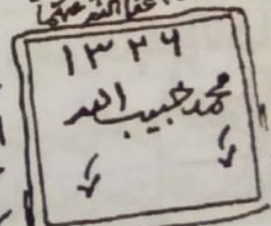 عفا الله عنهما
١٣٢٦
محمد حبيب الله